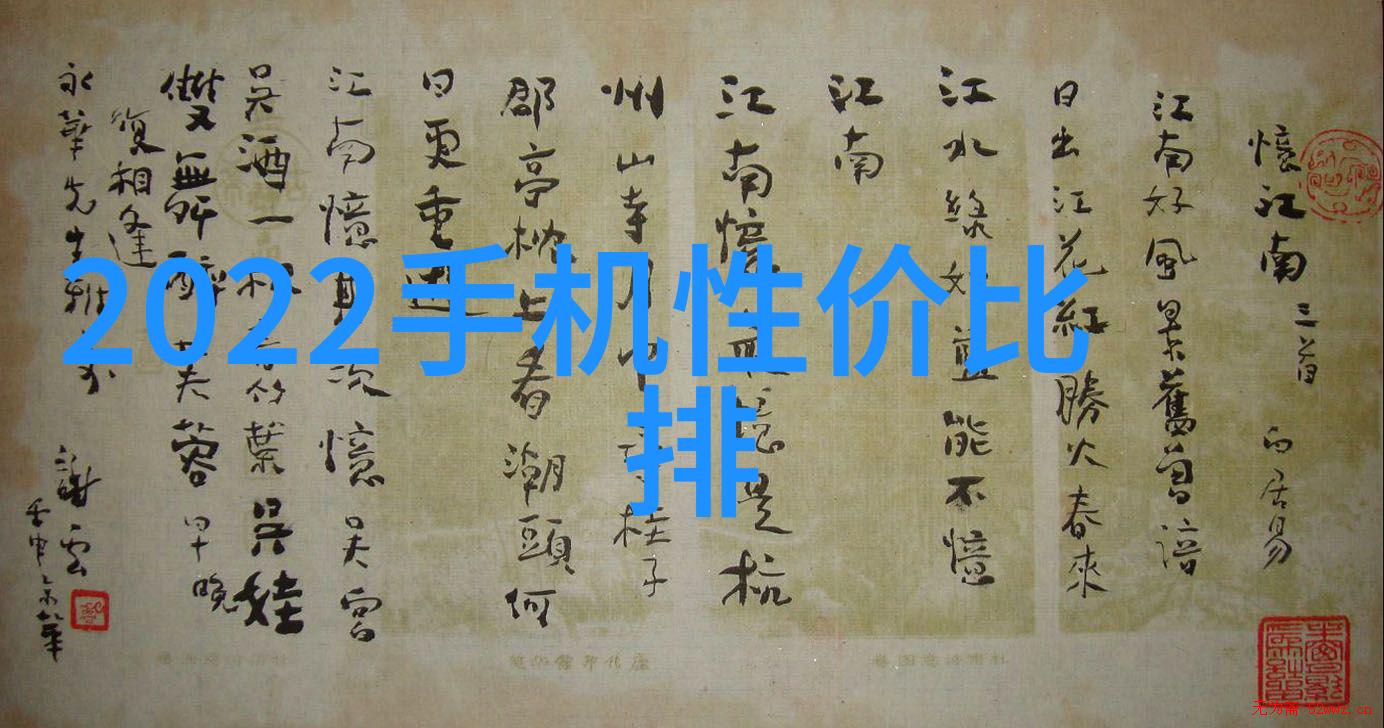 憶江南 三首 白居易
江南好風景舊曾諳
日出江花紅勝火春來
江水綠如藍能不憶
江南
江南憶最憶是杭
州山寺月中 桂子
郡亭枕上看潮頭何
日更重遊
江南憶其次憶吳宮
吳酒一杯春竹葉吳娃
雙舞醉芙蓉早晚
復相逢
永華先生雅
謝雲
壬申 京華
2022手机性价比
排